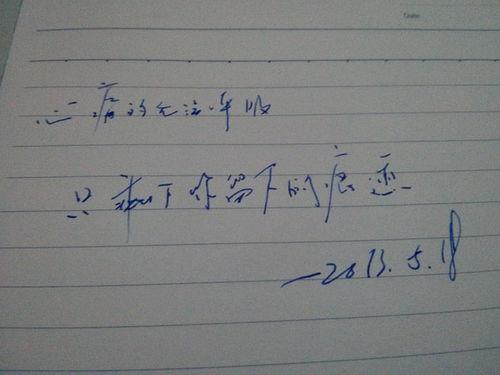 心痛的无法呼吸
只剩下你留下的痕迹
—2013.5.18